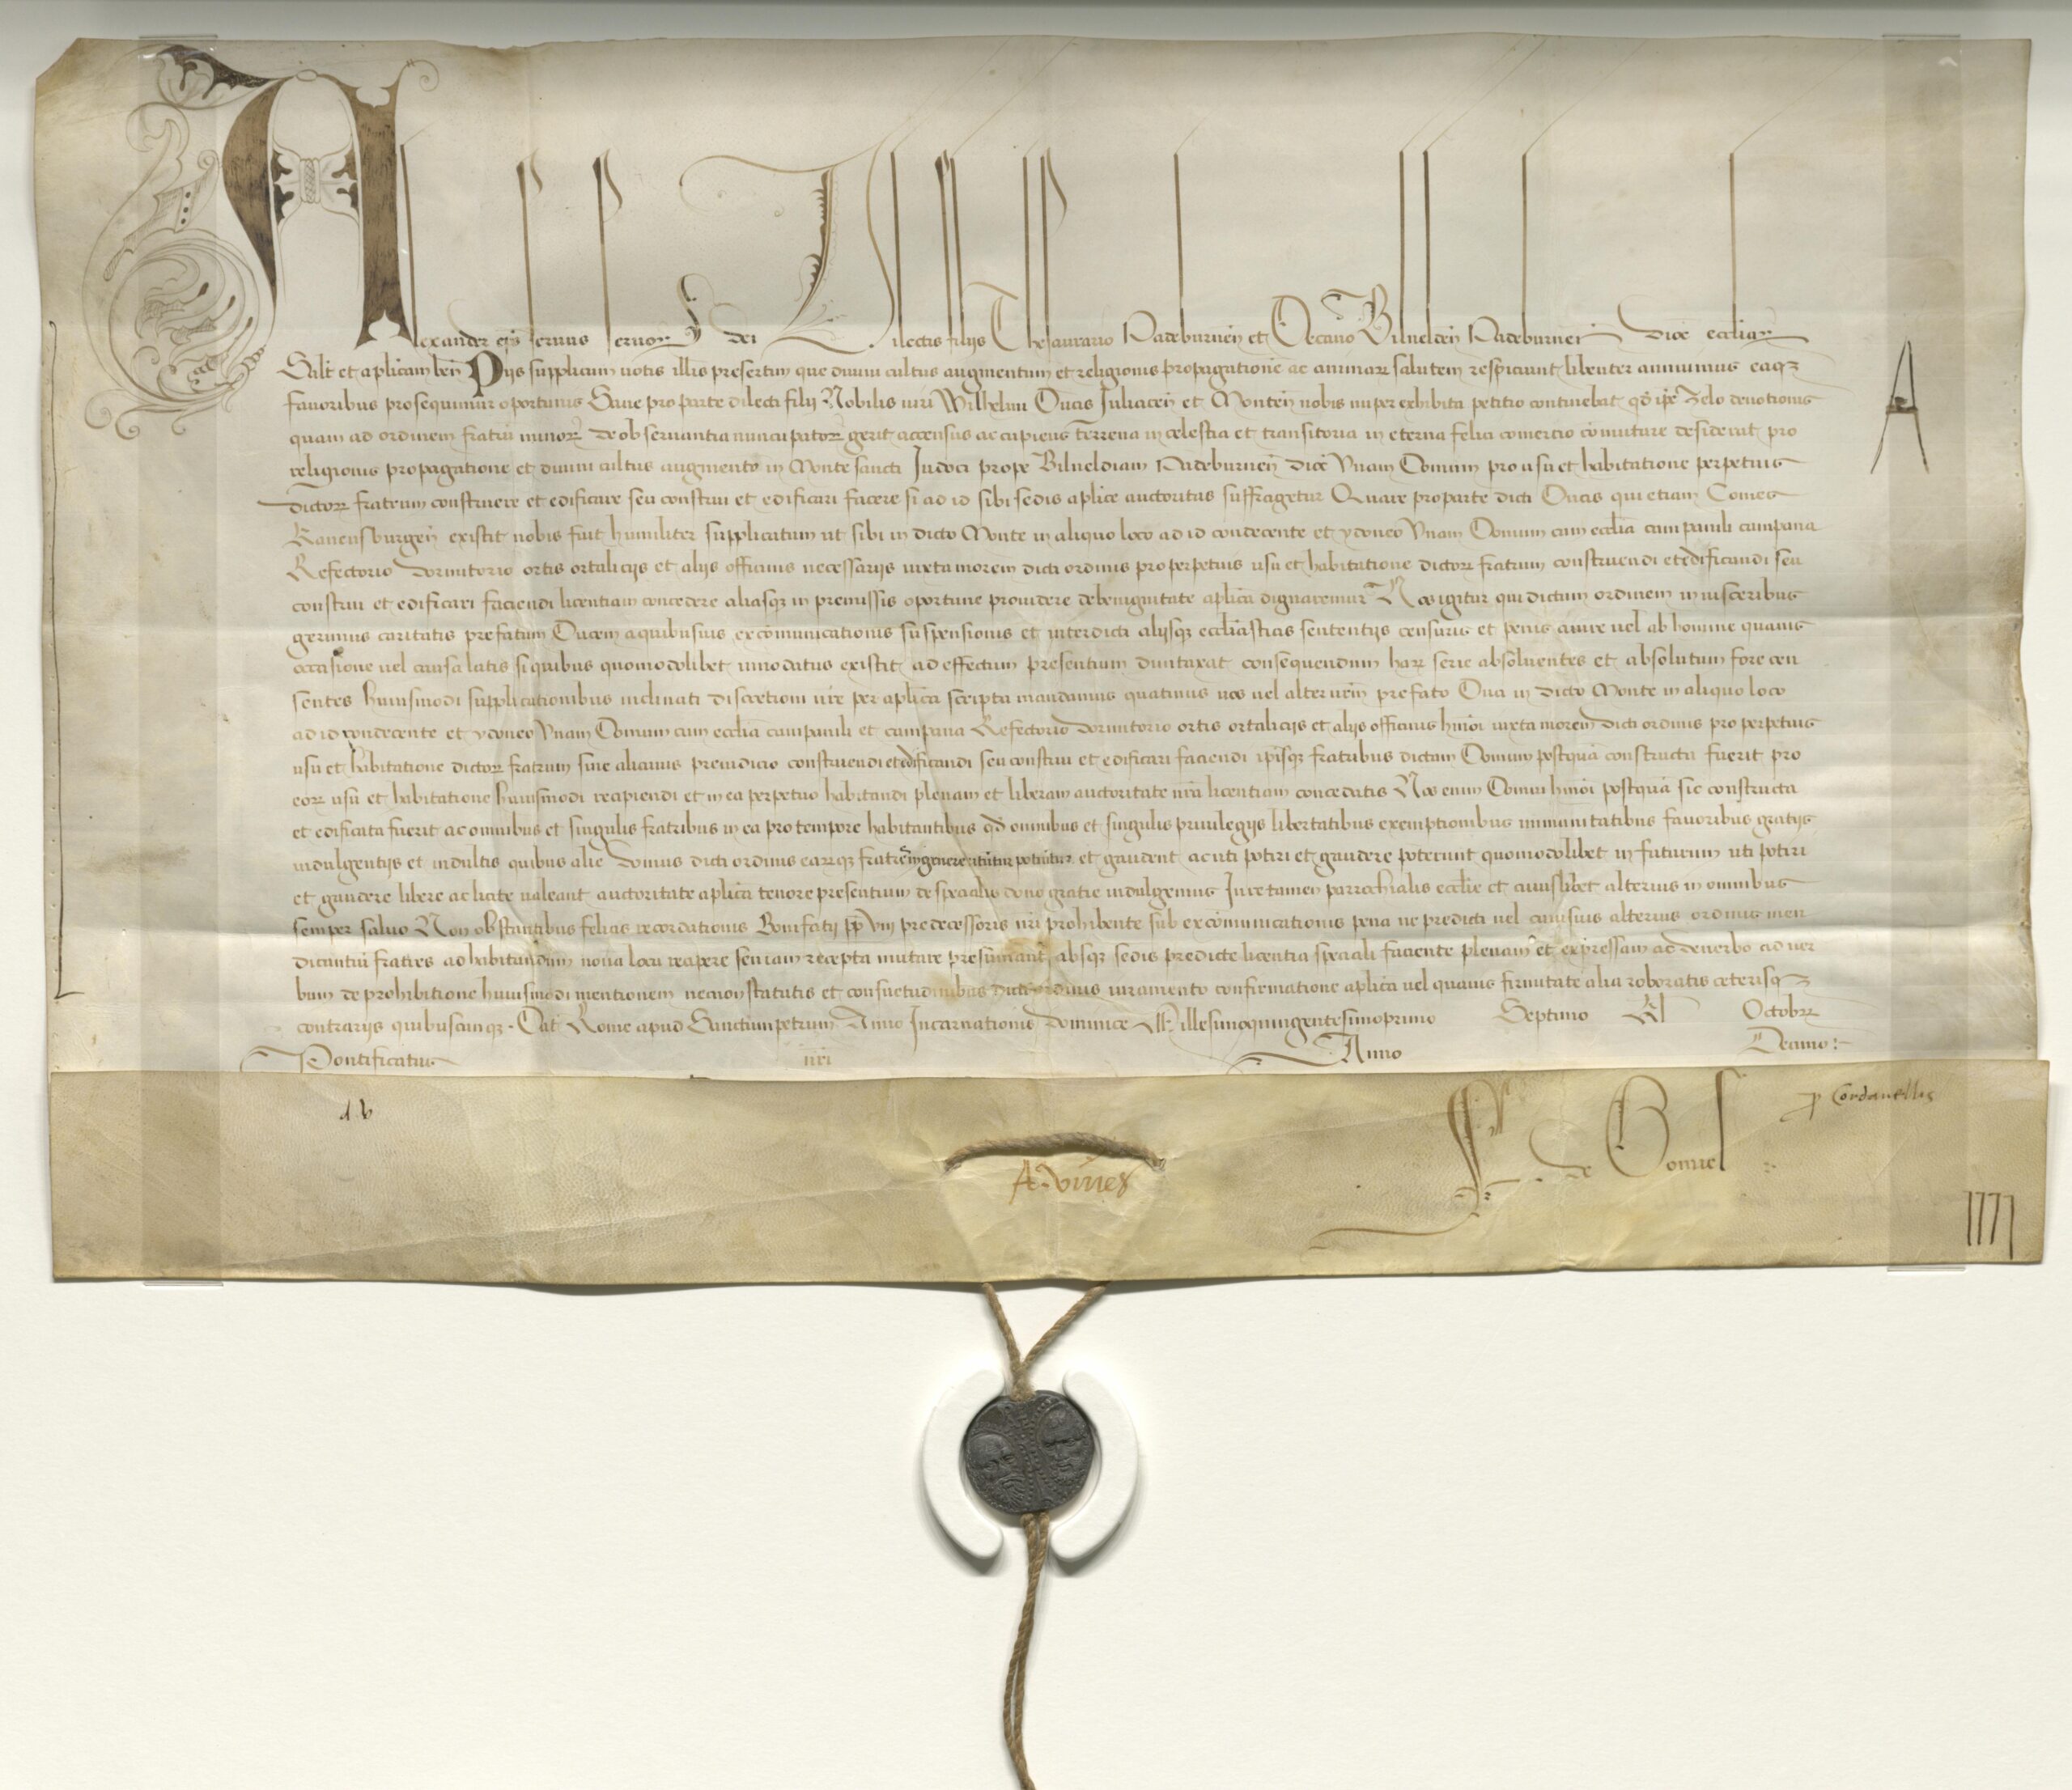 Alexander ep̄s seruus seruoꝝ dei Dilectis filijs Thesaurario Padeburneñ et Decano Bilueldeñ Padeburneñ dioc̄ eccliaꝝ
Salt̄ et aplicam beñ Pijs supplicum uotis illis presertim que diuini cultus augmentum et religionis propagatione ac animaꝝ salutem respiciunt libenter annuimus eaqꝫ
fauoribus prosequimur oportunis Sane pro parte dilecti filij Nobilis uiri Wilhelmi Ducis Juliaceñ et Monteñ nobis nuper exhibita petitio continebat qd̄ ip̄e Zelo deuotionis
quam ad ordinem fratrū minoꝝ de obseruantia nuncupatoꝝ gerit accensus ac cupiens terrena in celestia et transitoria in eterna felici comercio cōmutare desiderat pro
religionis propagatione et diuini cultus augmento in Monte sancti Judoci prope Bilueldiam Padeburneñ dioc̄ Vnam Domum pro usu et habitatione perpetuis
dictoꝝ fratrum construere et edificare seu construi et edificari facere si ad id sibi sedis aplice auctoritas suffragetur Quare pro parte dicti Ducis qui etiam Comes
Rauensburgeñ existit nobis fuit humiliter supplicatum ut sibi in dicto Monte in aliquo loco ad id condecente et ydoneo Vnam Domum cum ecclia campanili campana
Refectorio dormitorio ortis ortalicijs et alijs officinis necessarijs iuxta morem dicti ordinis pro perpetuis usu et habitatione dictoꝝ fratrum construendi et edificandi seu
construi et edificari faciendi licentiam concedere aliasqꝫ in premissis oportune prouidere de benignitate aplica dignaremur Nos igitur qui dictum ordinem in uisceribus
gerimus caritatis prefatum Ducem a quibusuis excōmunicationis suspensionis et interdicti alijsqꝫ eccliasticis sententijs censuris et penis a iure uel ab homine quauis
occasione uel causa latis si quibus quomodolibet innodatus existit ad effectum presentium duntaxat consequendum haꝝ serie absoluentes et absolutum fore cen
sentes huiusmodi supplicationibus inclinati discretioni ur̄e per aplica scripta mandamus quatinus uos uel alter ur̄m prefato Duci in dicto Monte in aliquo loco
ad id condecente et ydoneo Vnam Domum cum ecclia campanili et campana Refectorio dormitorio ortis ortalicijs et alijs officinis hmōi iuxta morem dicti ordinis pro perpetuis
usu et habitatione dictoꝝ fratrum sine alicuius preiudicio construendi et edificandi seu construi et edificari faciendi ip̄isqꝫ fratribus dictam Domum postquā constructa fuerit pro
eoꝝ usu et habitatione huiusmodi recipiendi et in ea perpetuo habitandi plenam et liberam auctoritate nr̄a licentiam concedatis Nos enim Domui hmōi postquā sic constructa
et edificata fuerit ac omnibus et singulis fratribus in ea pro tempore habitantibus qd̄ omnibus et singulis priuilegijs libertatibus exemptionibus immunitatibus fauoribus gratijs
indulgentijs et indultis quibus alie domus dicti ordinis earūqꝫ fratres in genere utūtur potiūtur et gaudent ac uti potiri et gaudere poterunt quomodolibet in futurum uti potiri
et gaudere libere ac licite ualeant auctoritate aplica tenore presentium de specialis dono gratie indulgemus Iure tamen parrochialis ecclie et cuiuslibet alterius in omnibus
semper saluo Non obstantibus felicis recordationis Bonifatij pp̄ viij predecessoris nr̄i prohibente sub excōmunicationis pena ne predicti uel cuiusuis alterius ordinis men
dicantiū fratres ad habitandum noua loca recipere seu iam recepta mutare presumant absqꝫ sedis predicte licentia speciali faciente plenam et expressam ac de uerbo ad uer
bum de prohibitione huiusmodi mentionem necnon statutis et consuetudinibus dicti ordinis iuramento confirmatione aplica uel quauis firmitate alia roboratis ceterisqꝫ
contrarijs quibuscunqꝫ. Dat̄ Rome apud Sanctumpetrum Anno Incarnationis dominice Millesimoquingentesimoprimo Septimo Kl Octobꝝ
Pontificatus nr̄i Anno Decimo :
A
d. b
p̱ Cordanellis
A. viues
de Bonuel